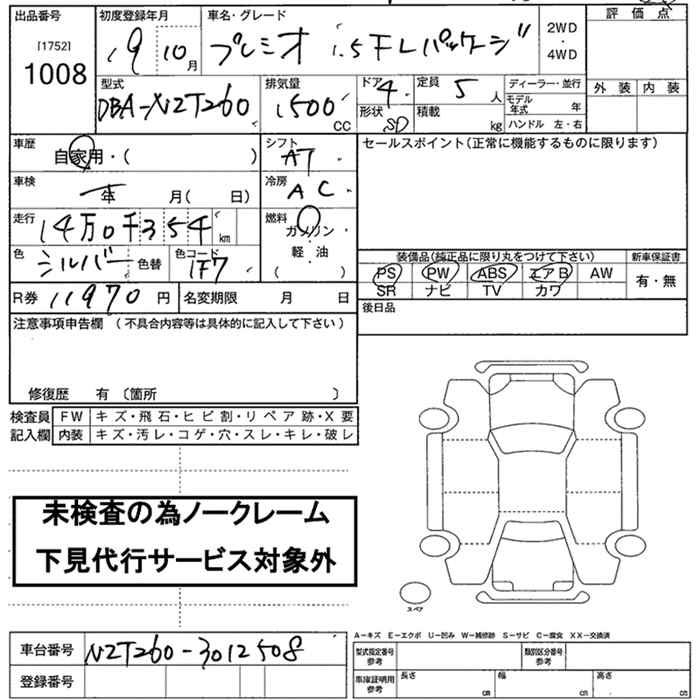 出品番号 初度登録年月 車名・グレード 評価点
[1752] 1008 19 10月 プレミオ 1.5F Lパッケージ 2WD・4WD
型式 排気量 ドア 4 定員 5人 ディーラー・並行 外装 内装
DBA-NZT260 1500cc 形状 SD 積載 kg モデル年式 年
ハンドル 左・右
車歴 自家用・( ) シフト AT セールスポイント(正常に機能するものに限ります)
車検 年 月( 日) 冷房 AC
走行 14万0千354km 燃料 ガソリン・軽油( )
色 シルバー 色替 色コード 1F7 装備品(純正品に限り丸をつけて下さい) 新車保証書
PS PW ABS エアB AW 有・無
SR ナビ TV カワ
R券 11970円 名変期限 月 日 後日品
注意事項申告欄 (不具合内容等は具体的に記入して下さい)
修復歴 有 〔箇所 〕
検査員 FW キズ・飛石・ヒビ割・リペア跡・X要
記入欄 内装 キズ・汚レ・コゲ・穴・スレ・キレ・破レ
未検査の為ノークレーム
下見代行サービス対象外
スペア
A−キズ E−エクボ U−凹み W−補修跡 S−サビ C−腐食 XX−交換済
車台番号 NZT260-3012508 型式指定番号 参考 類別区分番号 参考
登録番号 車庫証明用 参考 長さ cm 幅 cm 高さ cm